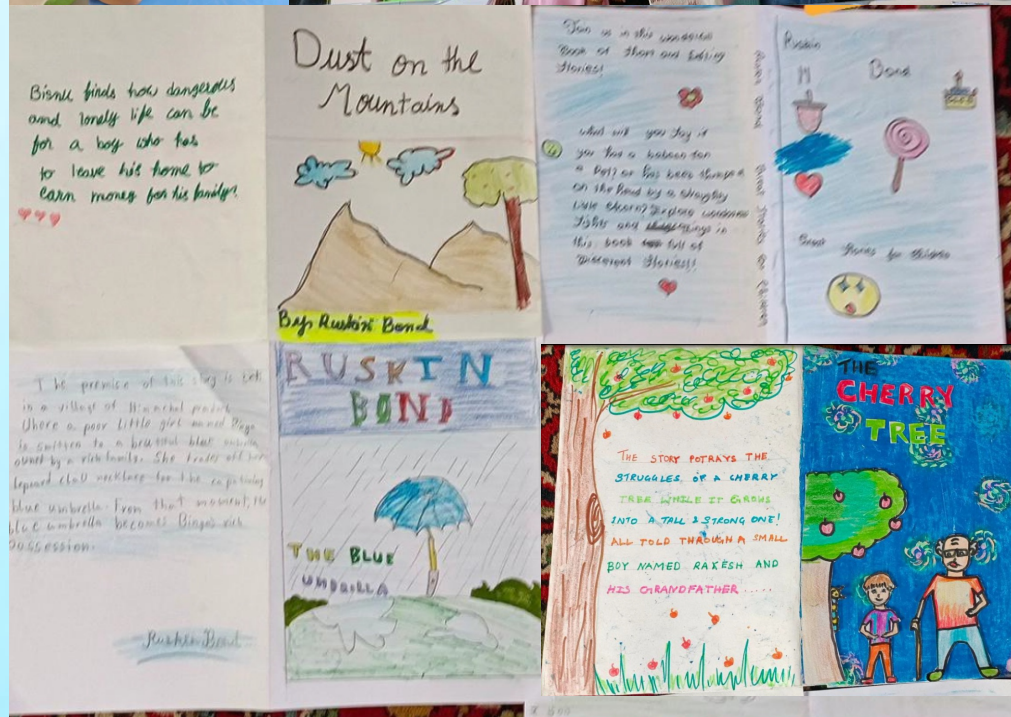 Bisnu finds how dangerous
and lonely life can be
for a boy who has
to leave his home to
earn money for his family!
Dust on the
Mountains
By Ruskin Bond
Join us in this wonderful
Book of Short and Exciting
Stories!
what will you say if
you had a baboon for
a Pet? or has been
on the head by a
little
and in
this book full of
Different Stories!!
Ruskin Bond
Ruskin
Bond
Great Stories for Children
The premise of this story is set
in a village of Himachal pradesh
Where a poor little girl named Binya
is smitten to a beautiful blue umbrella
owned by a rich family. She trades off her
lepoard claw necklace for the
blue umbrella. From that moment, the
blue umbrella becomes Binya's
Possession.
Ruskin Bond
RUSKIN
BOND
THE BLUE
UMBRILLA
THE STORY POTRAYS THE
STRUGGLES OF A CHERRY
TREE WHILE IT GROWS
INTO A TALL & STRONG ONE!
ALL TOLD THROUGH A SMALL
BOY NAMED RAKESH AND
HIS GRANDFATHER .....
THE
CHERRY
TREE